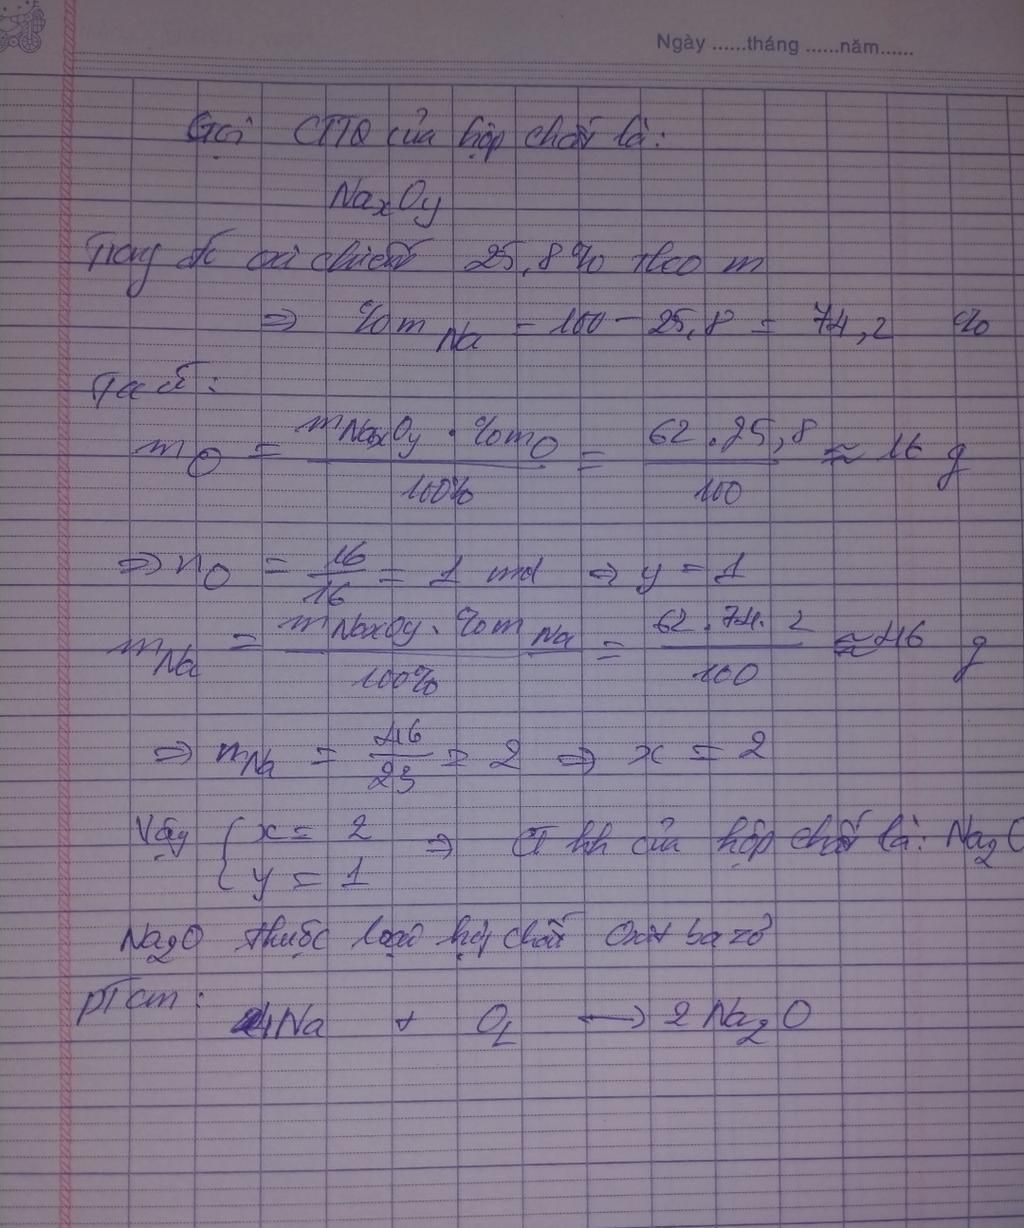 Ngày ......tháng ......năm......
Gọi CTTQ của hợp chất là:
NaxOy
Trong đó oxi chiếm 25,8% theo m
=> %m Na = 100 - 25,8 = 74,2 %
Ta có:
mO = mNaxOy . %mO / 100% = 62 . 25,8 / 100 ≈ 16 g
=> nO = 16/16 = 1 mol => y = 1
mNa = mNaxOy . %m Na / 100% = 62 . 74. 2 / 100 ≈ 46 g
=> mNa = 46/23 = 2 => x = 2
Vậy { x = 2 => CT hh của hợp chất là: Na2O
y = 1
Na2O thuộc loại hợp chất Oxit bazơ
4Na + O2 -> 2Na2O